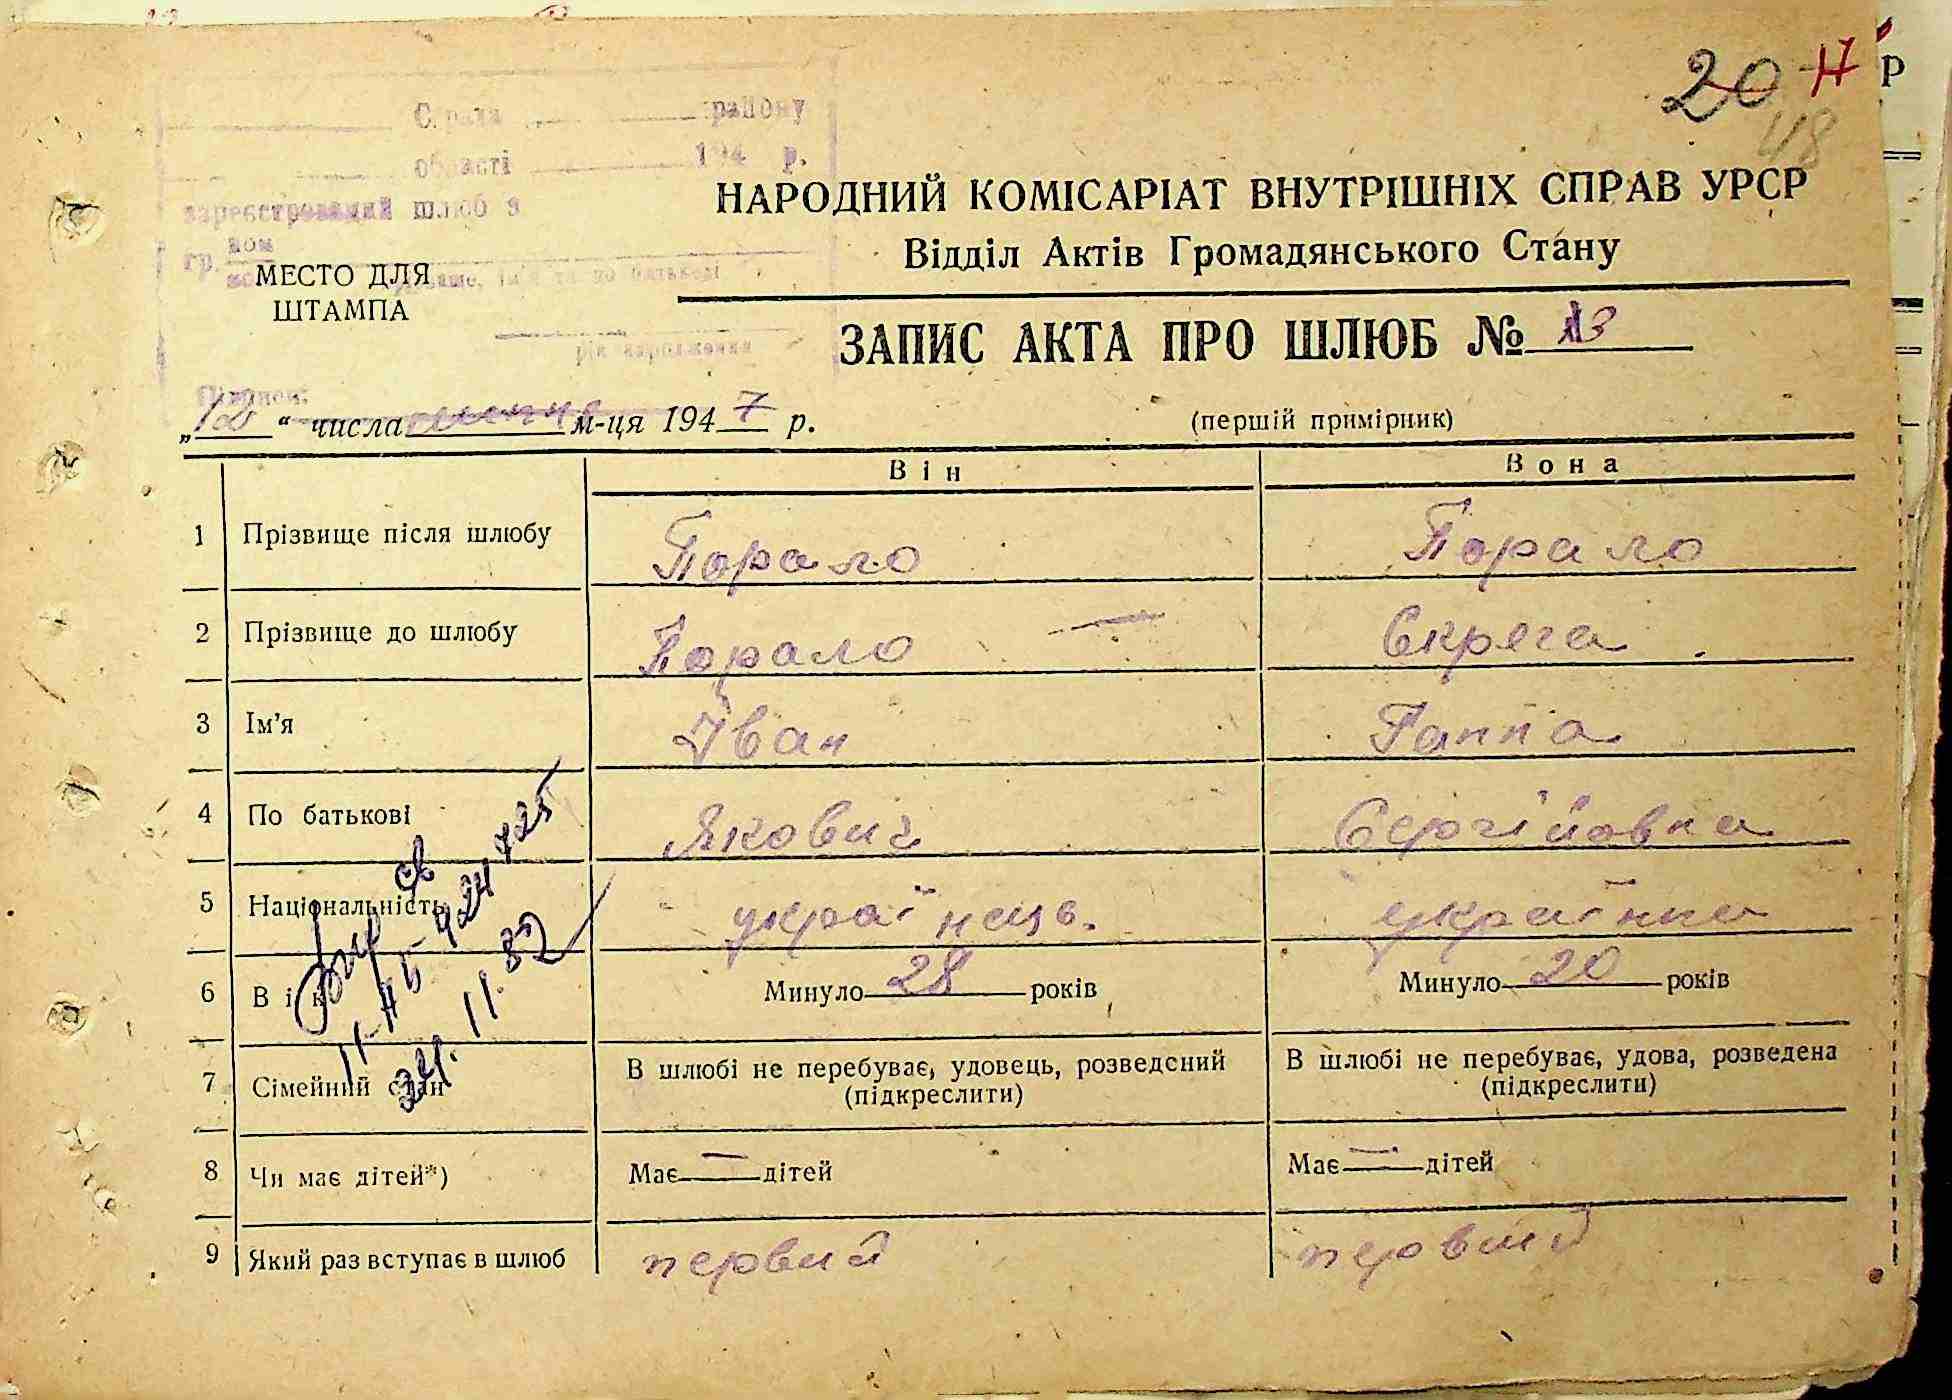 20 11 Р
48
Справа району
області 194 р.
зареєстрований шлюб з
гр. ном
МЕСТО ДЛЯ
ШТАМПА
рік народження
НАРОДНИЙ КОМІСАРІАТ ВНУТРІШНІХ СПРАВ УРСР
Відділ Актів Громадянського Стану
ЗАПИС АКТА ПРО ШЛЮБ № 13
„ “ числа м-ця 1947 р.
(першій примірник)
Він Вона
1 Прізвище після шлюбу Порало Порало
2 Прізвище до шлюбу Порало Скряга
3 Ім'я Іван Ганна
4 По батькові Якович Сергійовна
5 Національність українець. українка
6 Вік Минуло 28 років Минуло 20 років
7 Сімейний стан В шлюбі не перебуває, удовець, розведений (підкреслити) В шлюбі не перебуває, удова, розведена (підкреслити)
8 Чи має дітей*) Має — дітей Має — дітей
9 Який раз вступає в шлюб первий первий
24.11.82